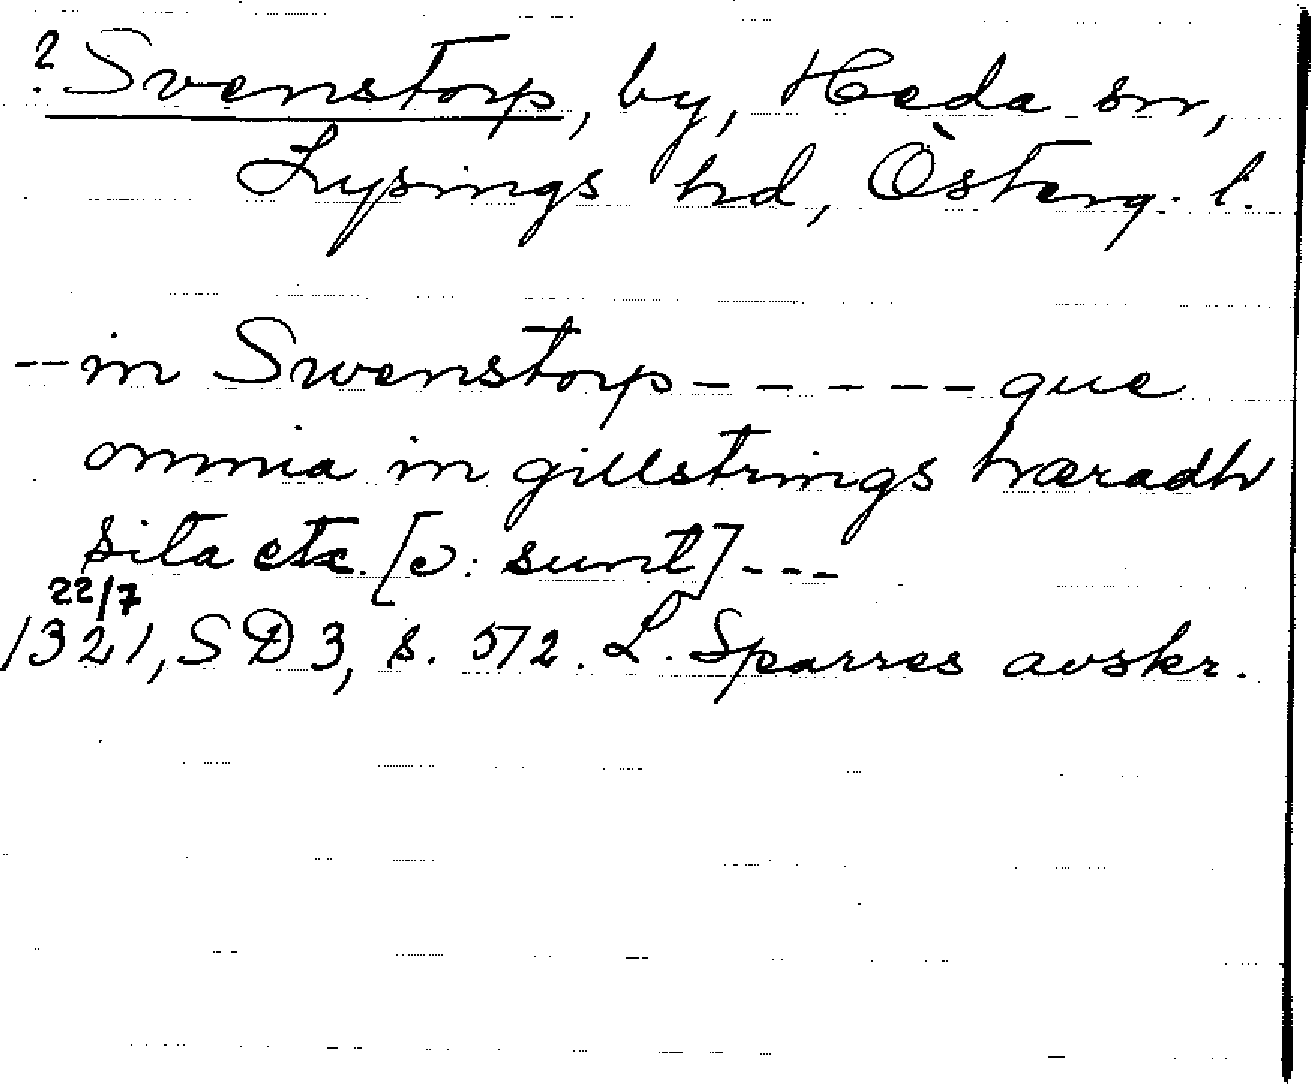 ? Svenstorp, by, Heda sn,
Lysings hd, Österg. l.
-- in Swenstorp - - - - - que
omnia in gillstrings hæradh
sita etc. [ɔ: sunt] ---
22/7
1321, SD 3, s. 572. L. Sparres avskr.